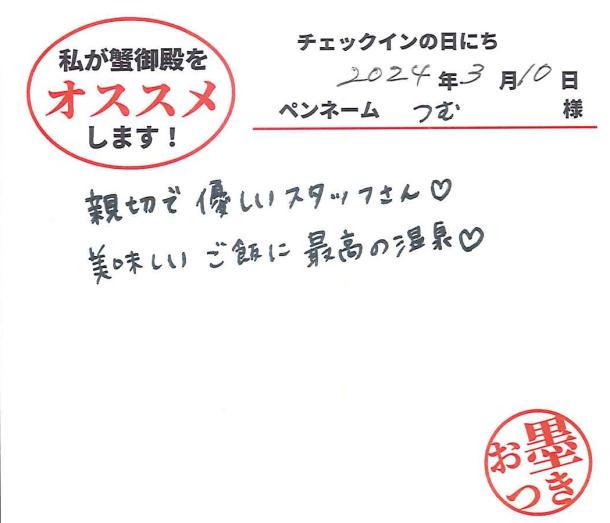 私が蟹御殿を
オススメ
します！
チェックインの日にち
2024年3月10日
ペンネーム つむ 様
親切で優しいスタッフさん♡
美味しいご飯に最高の温泉♡
お墨
つき